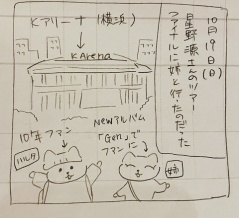 10月19日(日)
星野源さんのツアー
ファイナルに姉と行ったのだった
Kアリーナ(横浜)
K Arena
NEWアルバム
「Gen」で
ファンに
10年ファン
ハルタ
姉